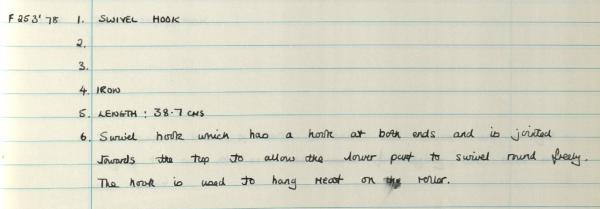 F253'78 1. SWIVEL HOOK
2.
3.
4. IRON
5. LENGTH : 38.7 CMS
6. Swivel hook which has a hook at both ends and is jointed
towards the top to allow the lower part to swivel round freely.
The hook is used to hang meat on the roller.